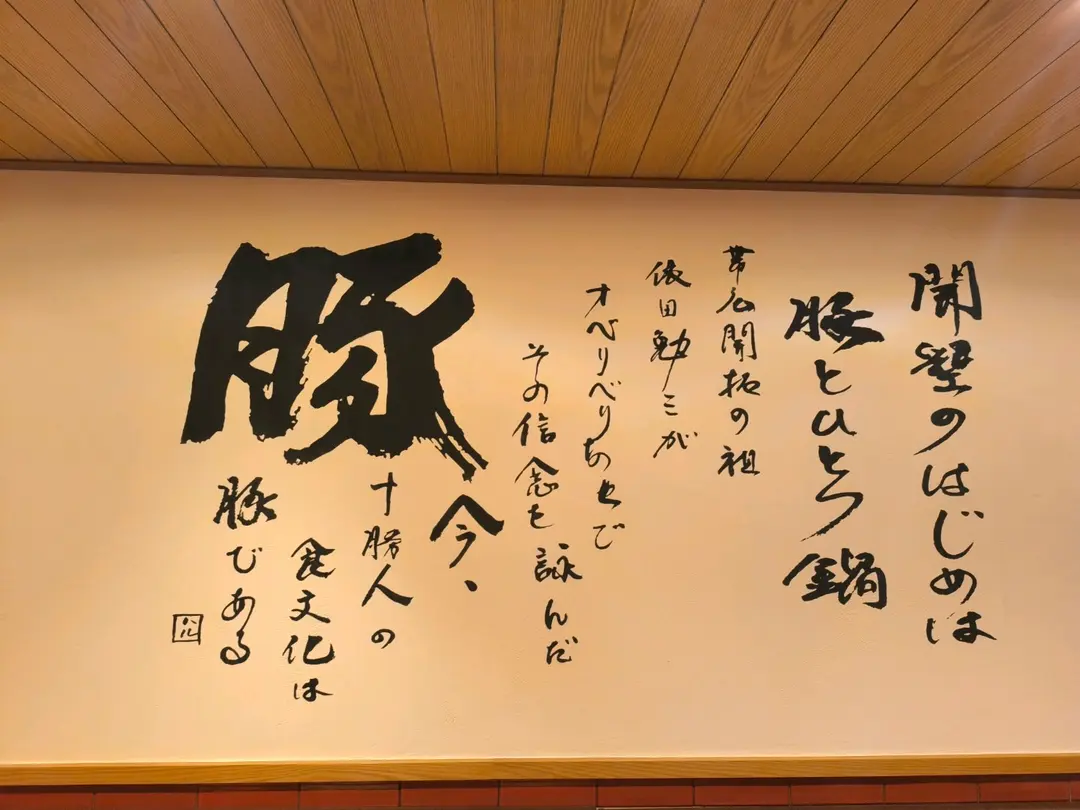 開墾のはじめは
豚とひとつ鍋
帯広開拓の祖
依田勉三が
オベリベリの地で
その信念を詠んだ
今、
十勝人の
食文化は
豚である
豚